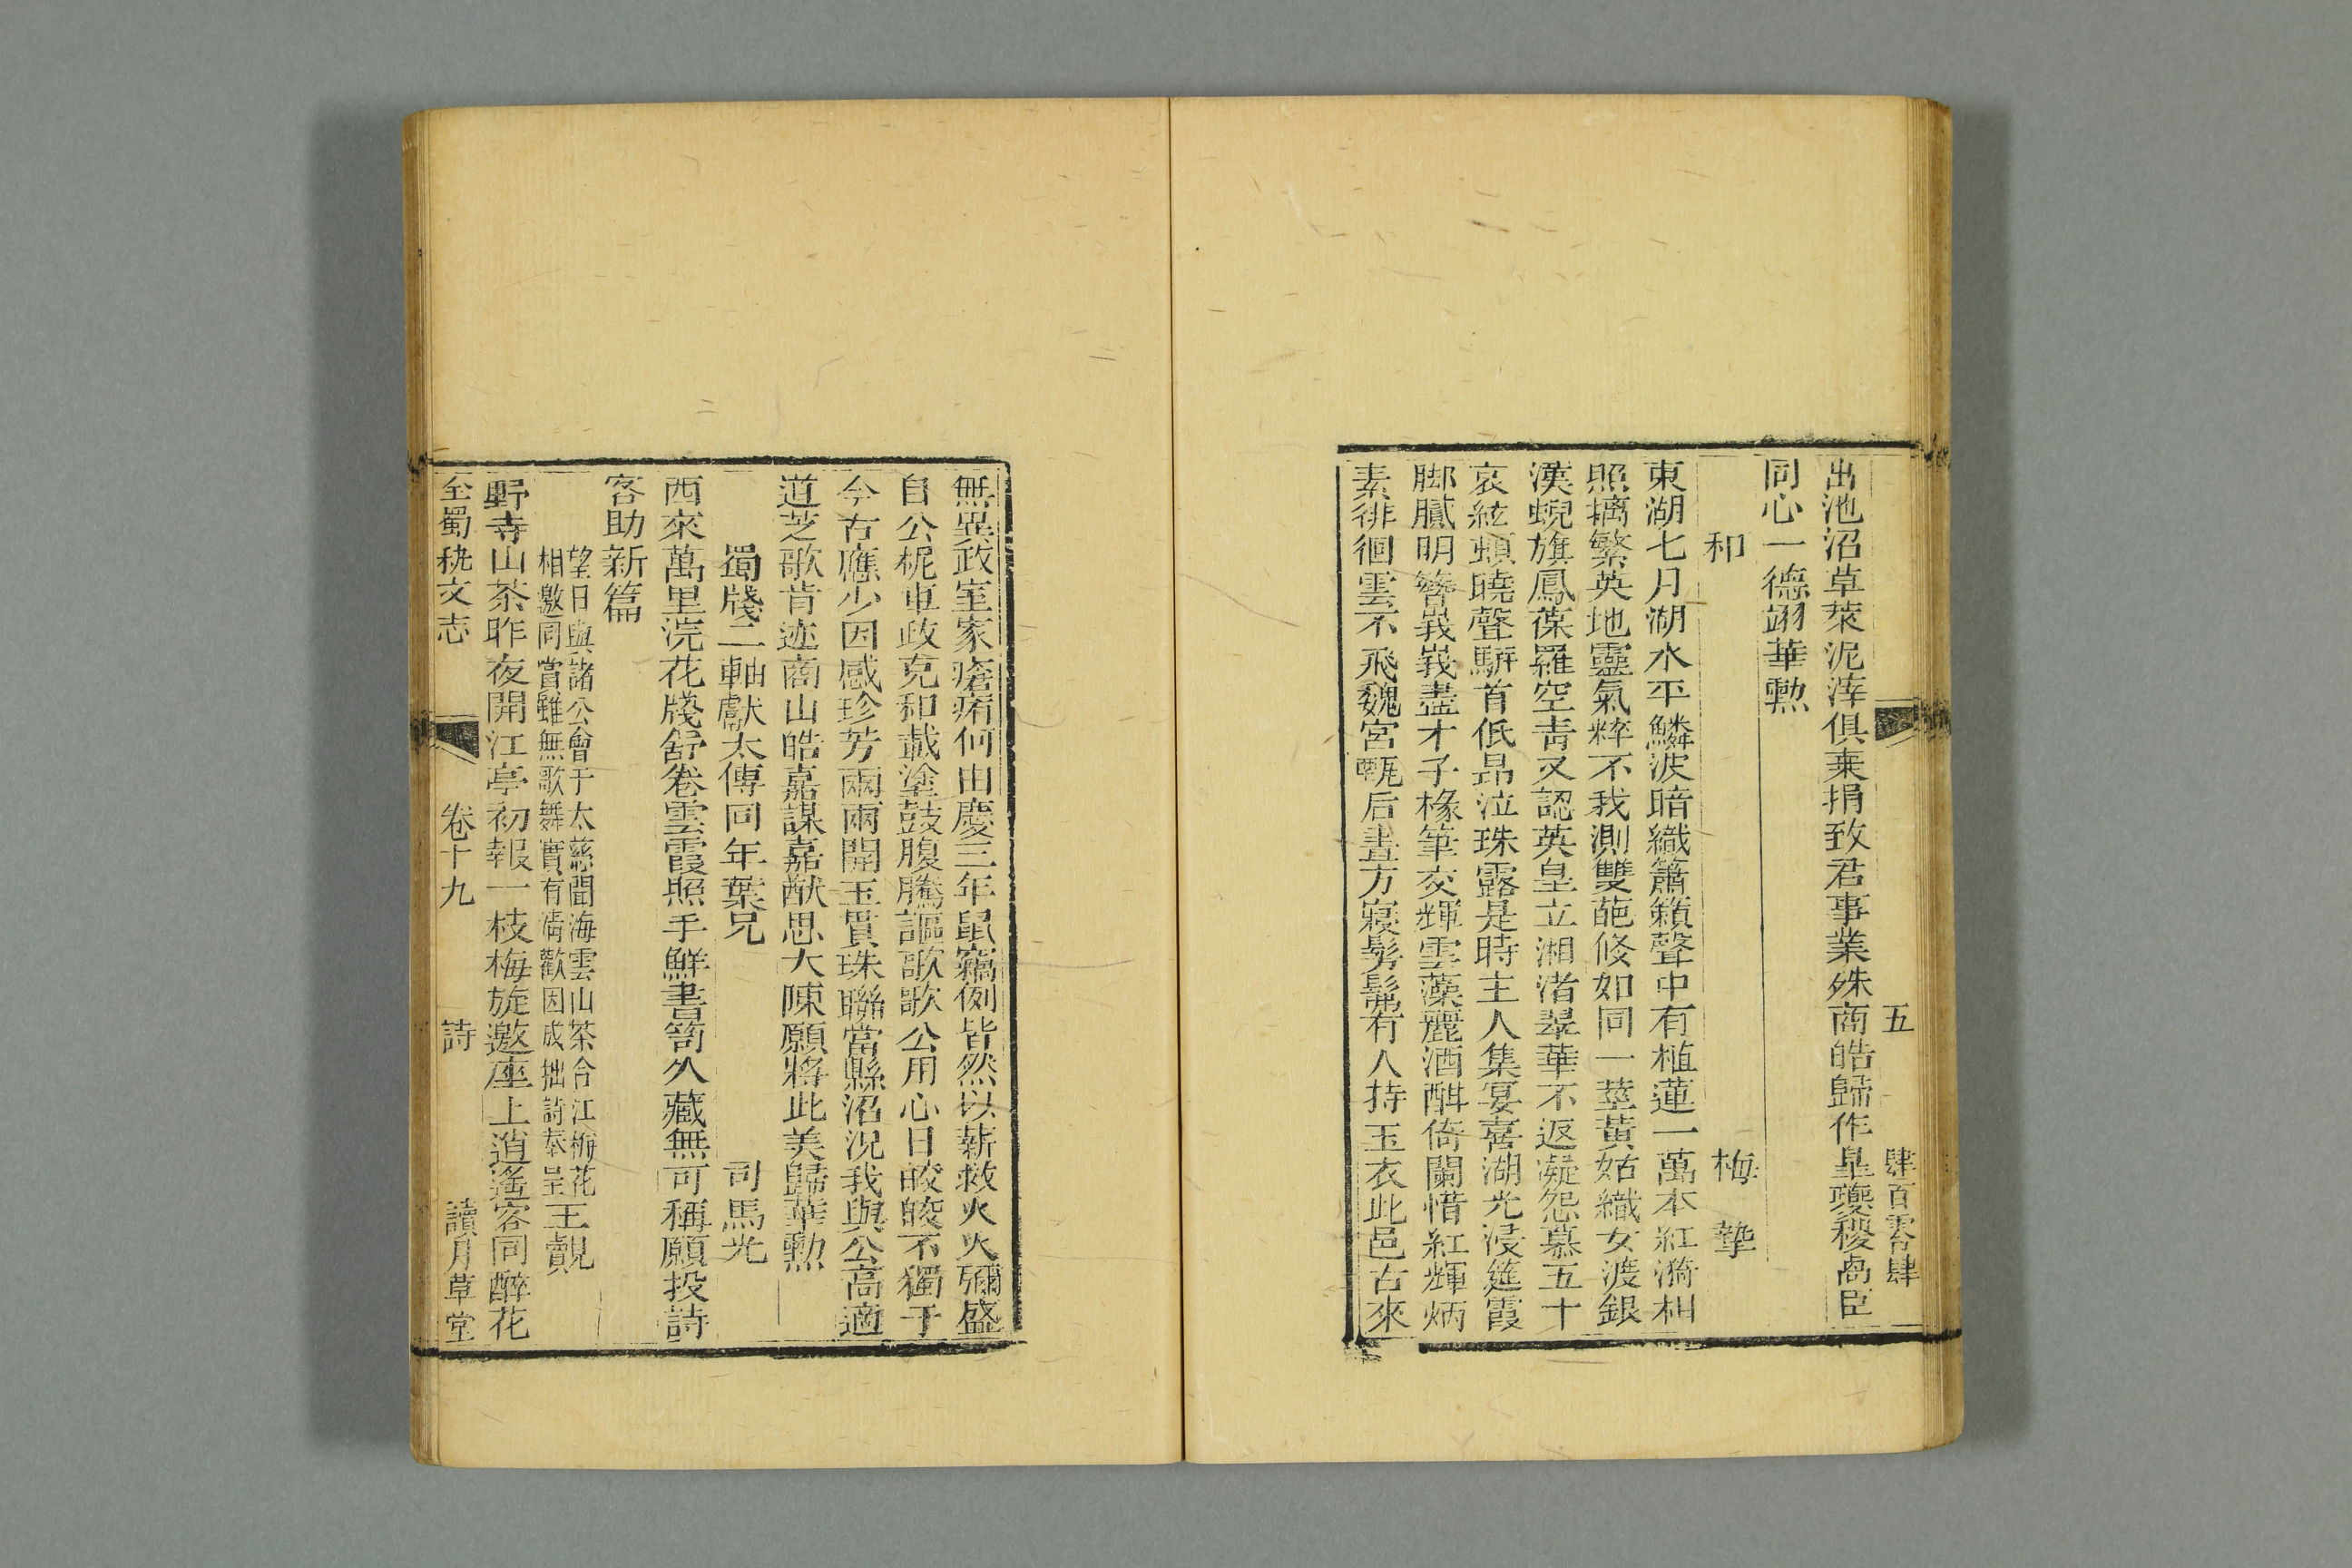 五 肆百零肆
出池沼草萊泥滓俱棄捐致君事業殊商皓歸作皐夔稷卨臣
同心一德翊華勲
和 梅摯
東湖七月湖水平鱗波暗織簫籟聲中有植蓮一萬本紅漪相
照摛繁英地靈氣粹不我測雙葩倐如同一莖黄姑織女渡銀
漢蜺旗鳳葆羅空靑又認英皇立湘渚翠華不返凝怨慕五十
哀絃頓曉聲駢首低昻泣珠露是時主人集宴喜湖光浸筵霞
脚膩明簪峩峩盡才子椽筆交輝雲藻麗酒酣倚闌惜紅輝炳
素徘徊雲不飛魏宮甄后晝方寢髣髴有人持玉衣此邑古來
無異政室家瘡痏何由慶三年鼠竊例皆然以薪救火火彌盛
自公柅車政克和載塗鼓腹騰謳歌歌公用心日皎皎不獨于
今古應少因感珍芳兩兩開玉貫珠聯當縣沼况我與公高適
道芝歌肯迹商山皓嘉謀嘉猷思大陳願將此美歸華勲
蜀牋二軸獻太傅同年葉兄 司馬光
西來萬里浣花牋舒卷雲霞照手鮮書笥久藏無可稱願投詩
客助新篇
望日與諸公會于太慈聞海雲山茶合江梅花
相邀同賞雖無歌舞實有淸歡因成拙詩奉呈 王覿
野寺山茶昨夜開江亭初報一枝梅旋邀座上逍遙客同醉花
全蜀秇文志 卷十九 詩 讀月草堂